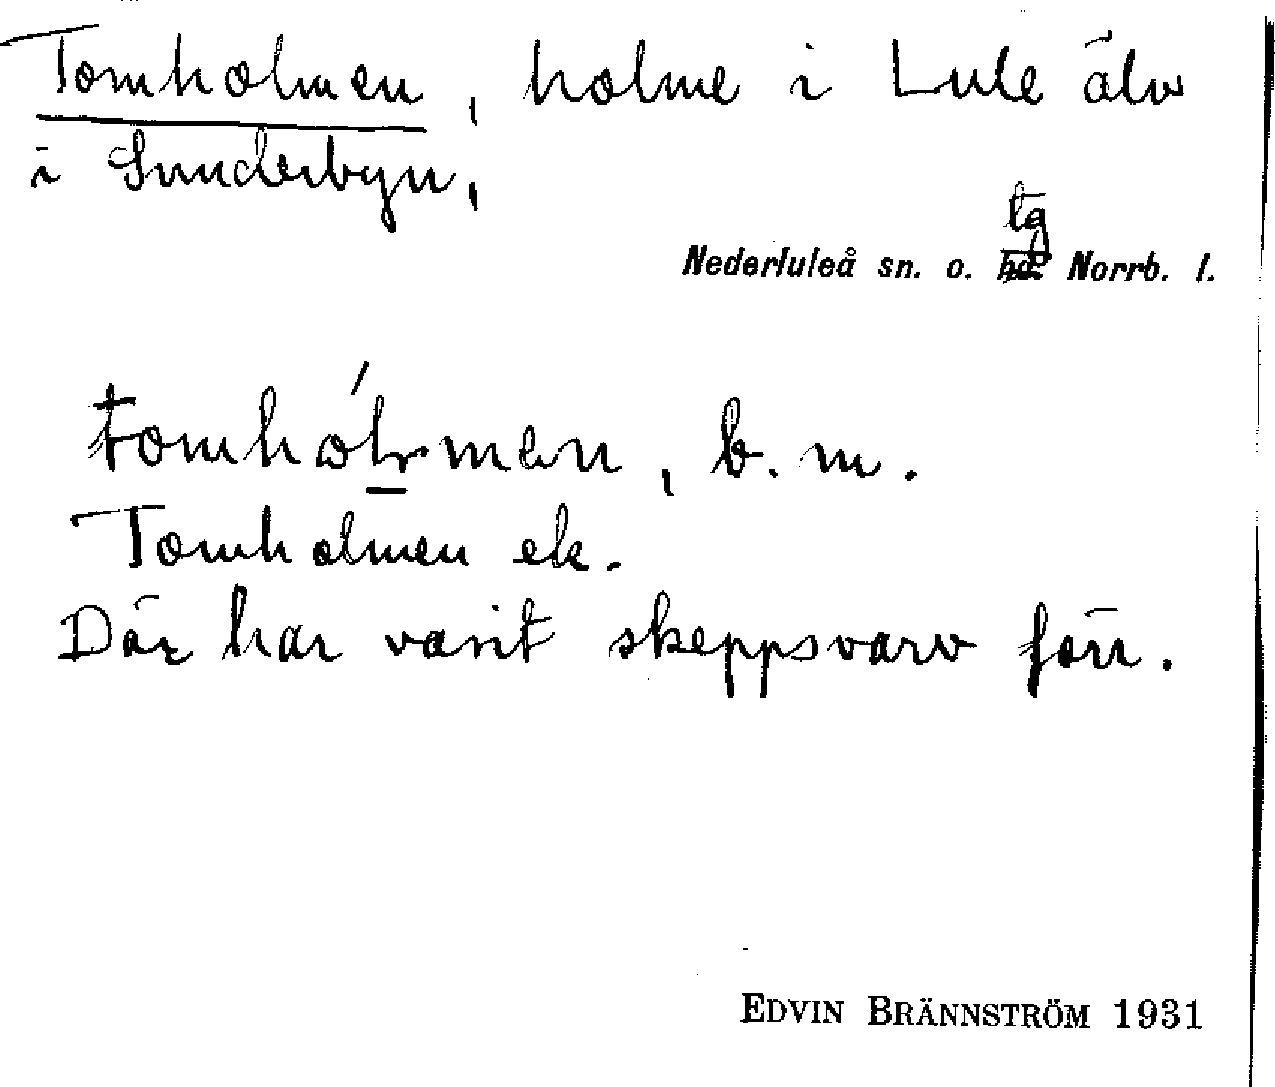 Tomholmen, holme i Lule älv
i Sunderbyn,
tg
Nederluleå sn. o. hd Norrb. l.
tomhólmen, b. m.
Tomholmen ek.
Där har varit skeppsvarv förr.
EDVIN BRÄNNSTRÖM 1931